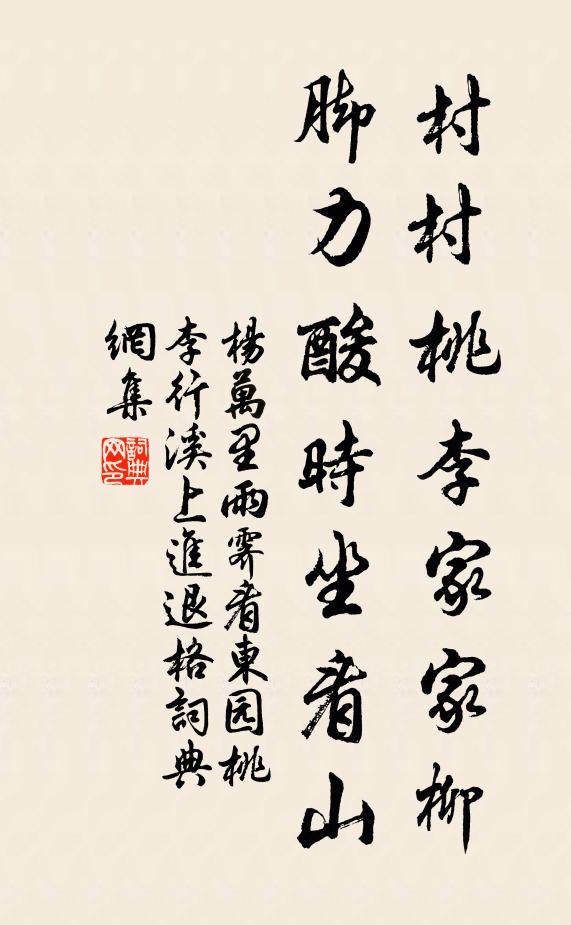 村村桃李家家柳
脚力酸時坐看山
楊萬里雨霽看東园桃
李行溪上進退格詞典
網集
詞典
网印